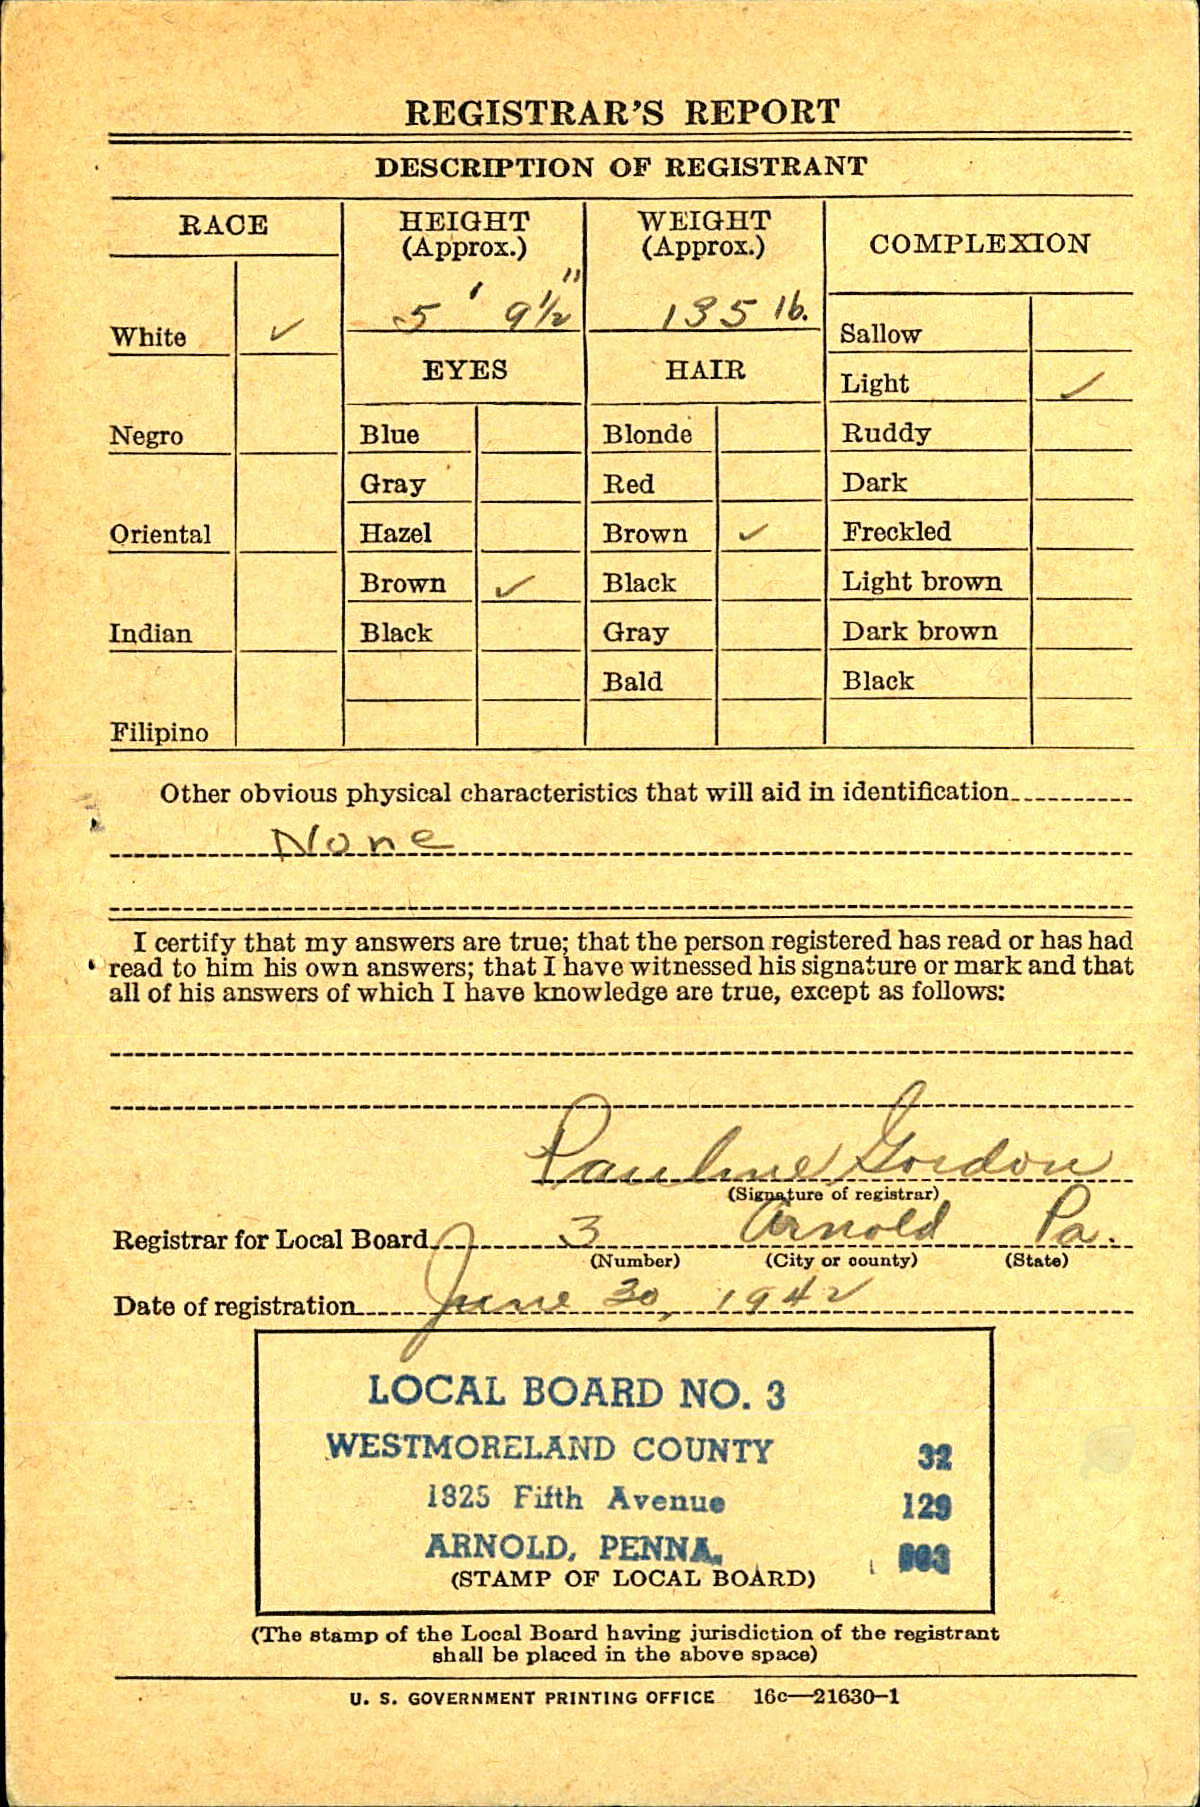 REGISTRAR'S REPORT
DESCRIPTION OF REGISTRANT
RACE
HEIGHT
(Approx.)
WEIGHT
(Approx.)
COMPLEXION
5 ' 9 1/2 "
135 lb.
White ✓
Sallow
EYES
HAIR
Light ✓
Negro
Blue
Blonde
Ruddy
Gray
Red
Dark
Oriental
Hazel
Brown ✓
Freckled
Brown ✓
Black
Light brown
Indian
Black
Gray
Dark brown
Bald
Black
Filipino
Other obvious physical characteristics that will aid in identification
None
I certify that my answers are true; that the person registered has read or has had
read to him his own answers; that I have witnessed his signature or mark and that
all of his answers of which I have knowledge are true, except as follows:
Pauline Gordon
(Signature of registrar)
Registrar for Local Board 3 Arnold Pa.
(Number) (City or county) (State)
Date of registration June 30, 1942
LOCAL BOARD NO. 3
WESTMORELAND COUNTY 32
1825 Fifth Avenue 129
ARNOLD, PENNA.
(STAMP OF LOCAL BOARD)
(The stamp of the Local Board having jurisdiction of the registrant
shall be placed in the above space)
U. S. GOVERNMENT PRINTING OFFICE 16c—21630-1